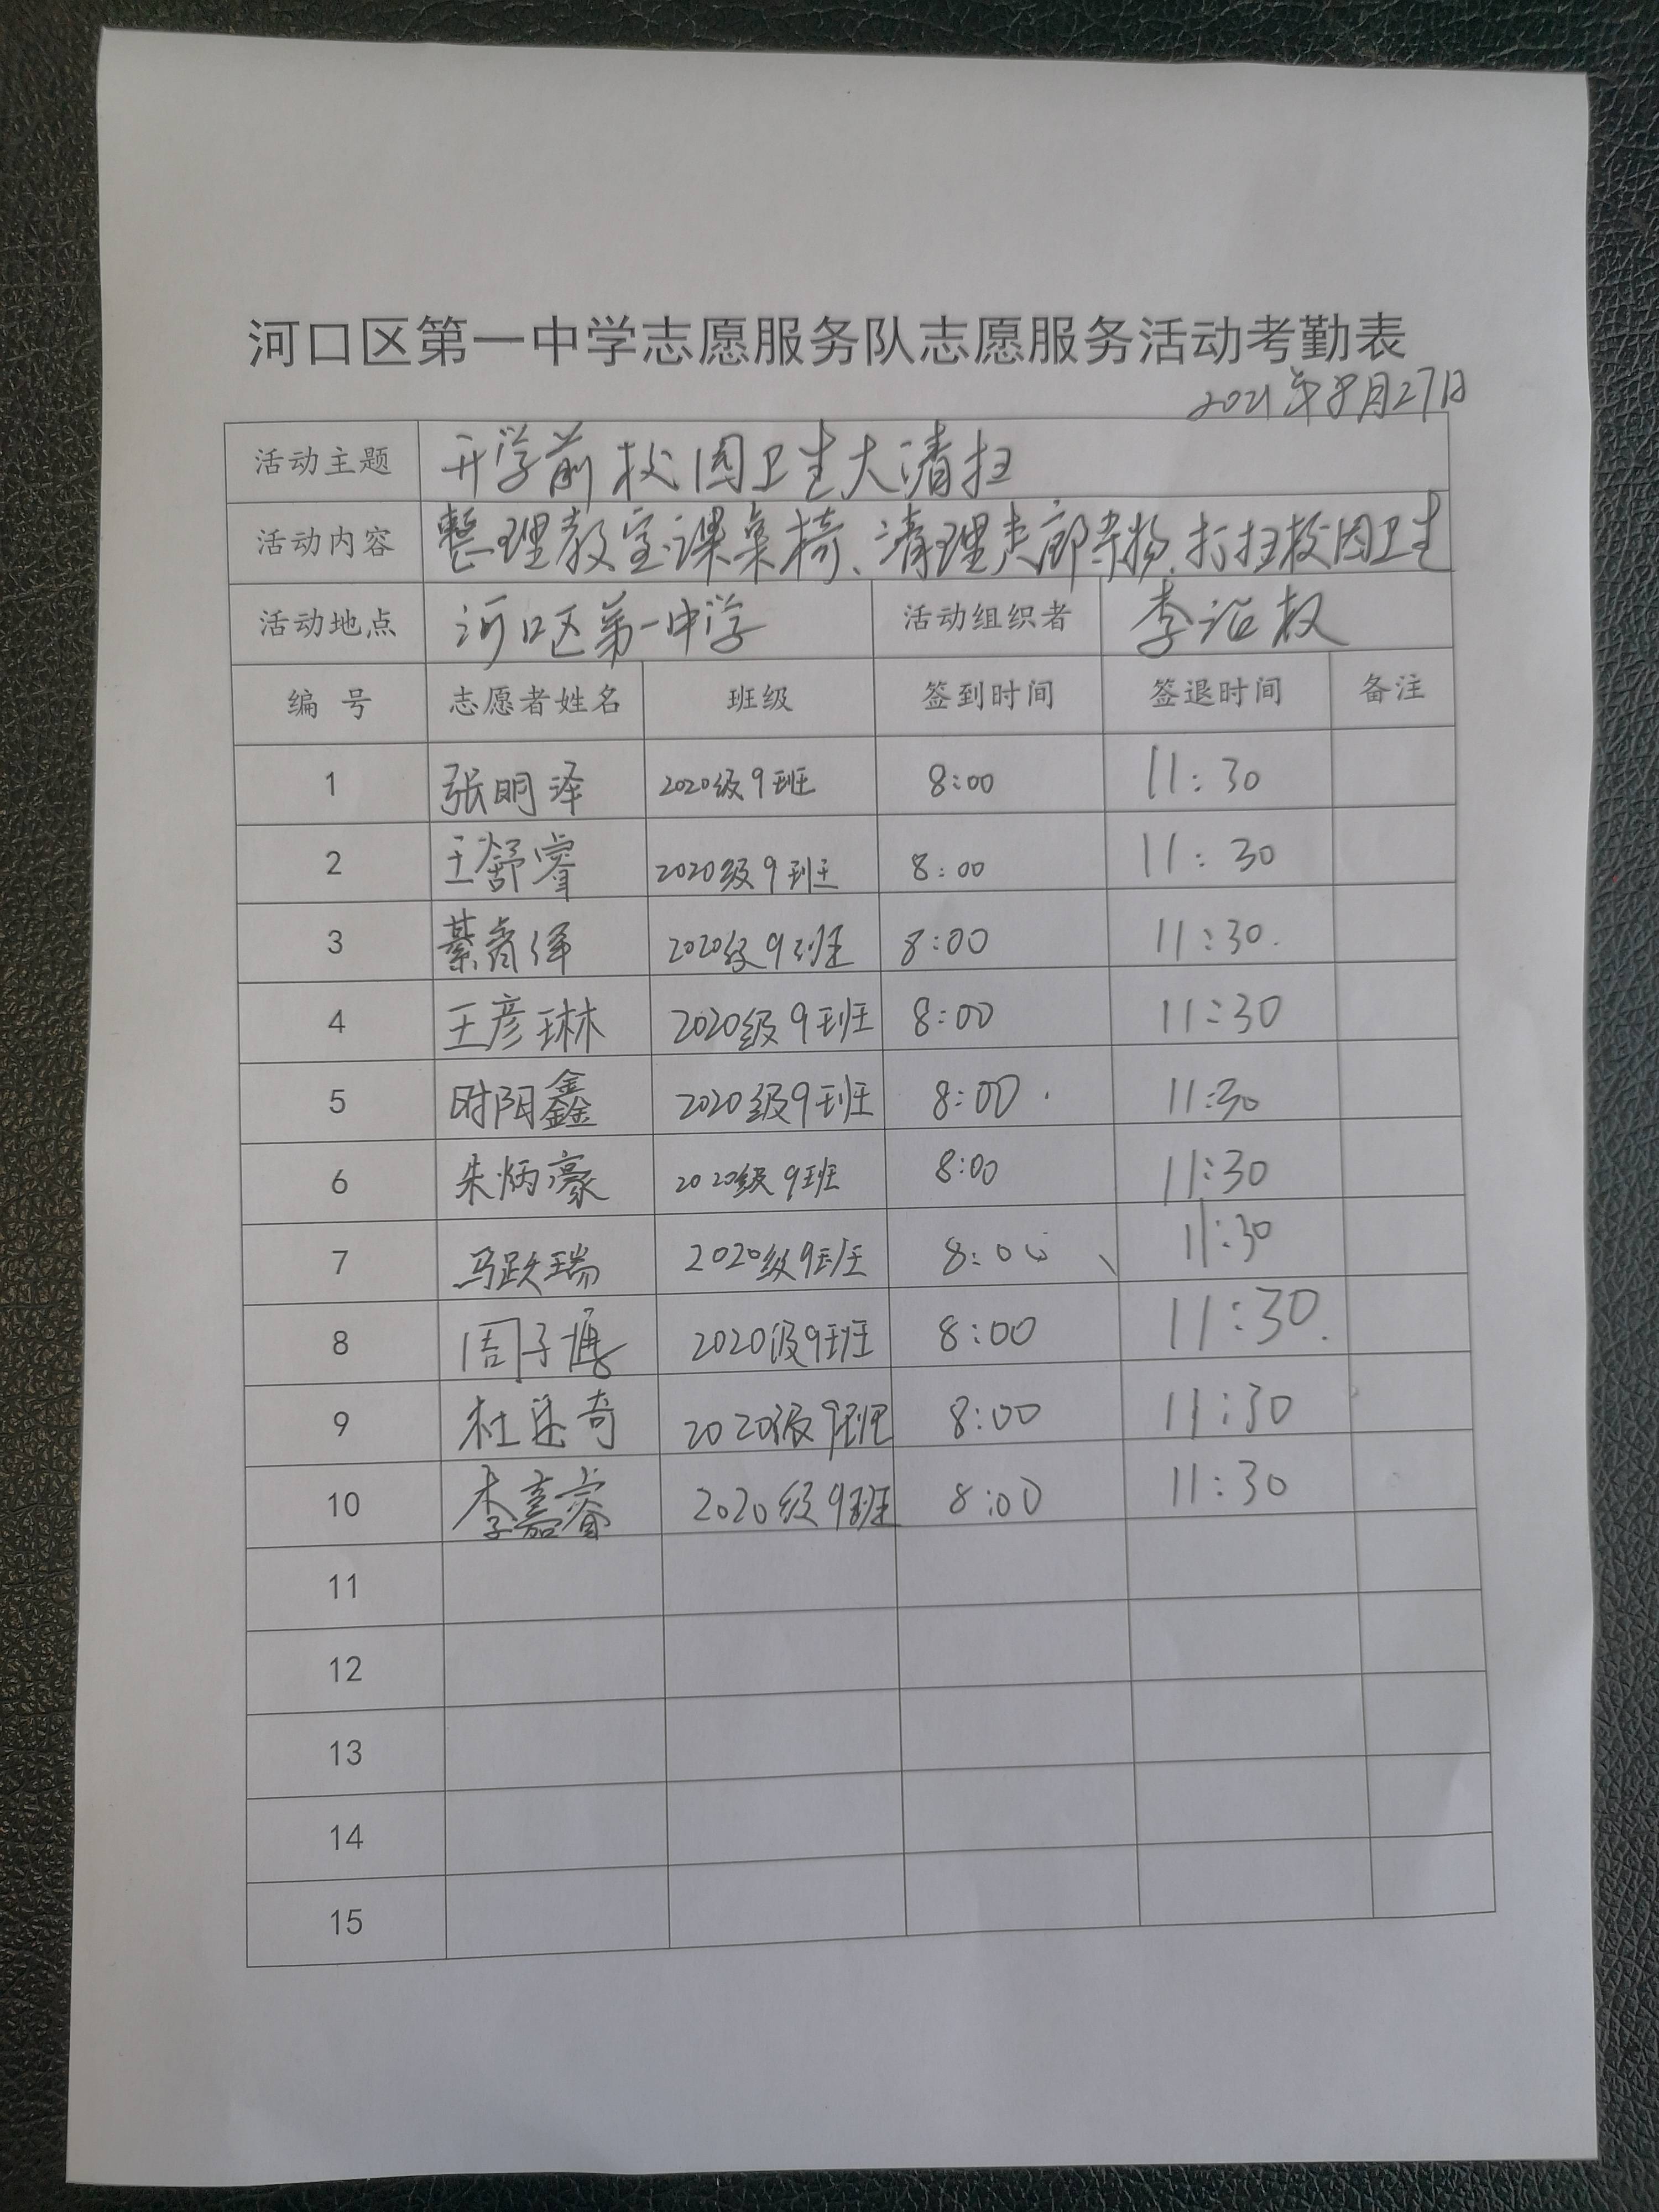 河口区第一中学志愿服务队志愿服务活动考勤表
2021年8月27日
活动主题 开学前校园卫生大清扫
活动内容 整理教室课桌椅、清理走廊杂物、打扫校园卫生
活动地点 河口区第一中学 活动组织者 李治权
编 号 志愿者姓名 班级 签到时间 签退时间 备注
1 张明泽 2020级9班 8:00 11:30
2 王舒睿 2020级9班 8:00 11:30
3 2020级9班 8:00 11:30
4 王彦琳 2020级9班 8:00 11:30
5 时阳鑫 2020级9班 8:00 11:30
6 朱炳豪 2020级9班 8:00 11:30
7 马跃瑞 2020级9班 8:00 11:30
8 周子博 2020级9班 8:00 11:30
9 杜乐奇 2020级9班 8:00 11:30
10 李嘉睿 2020级9班 8:00 11:30
11
12
13
14
15